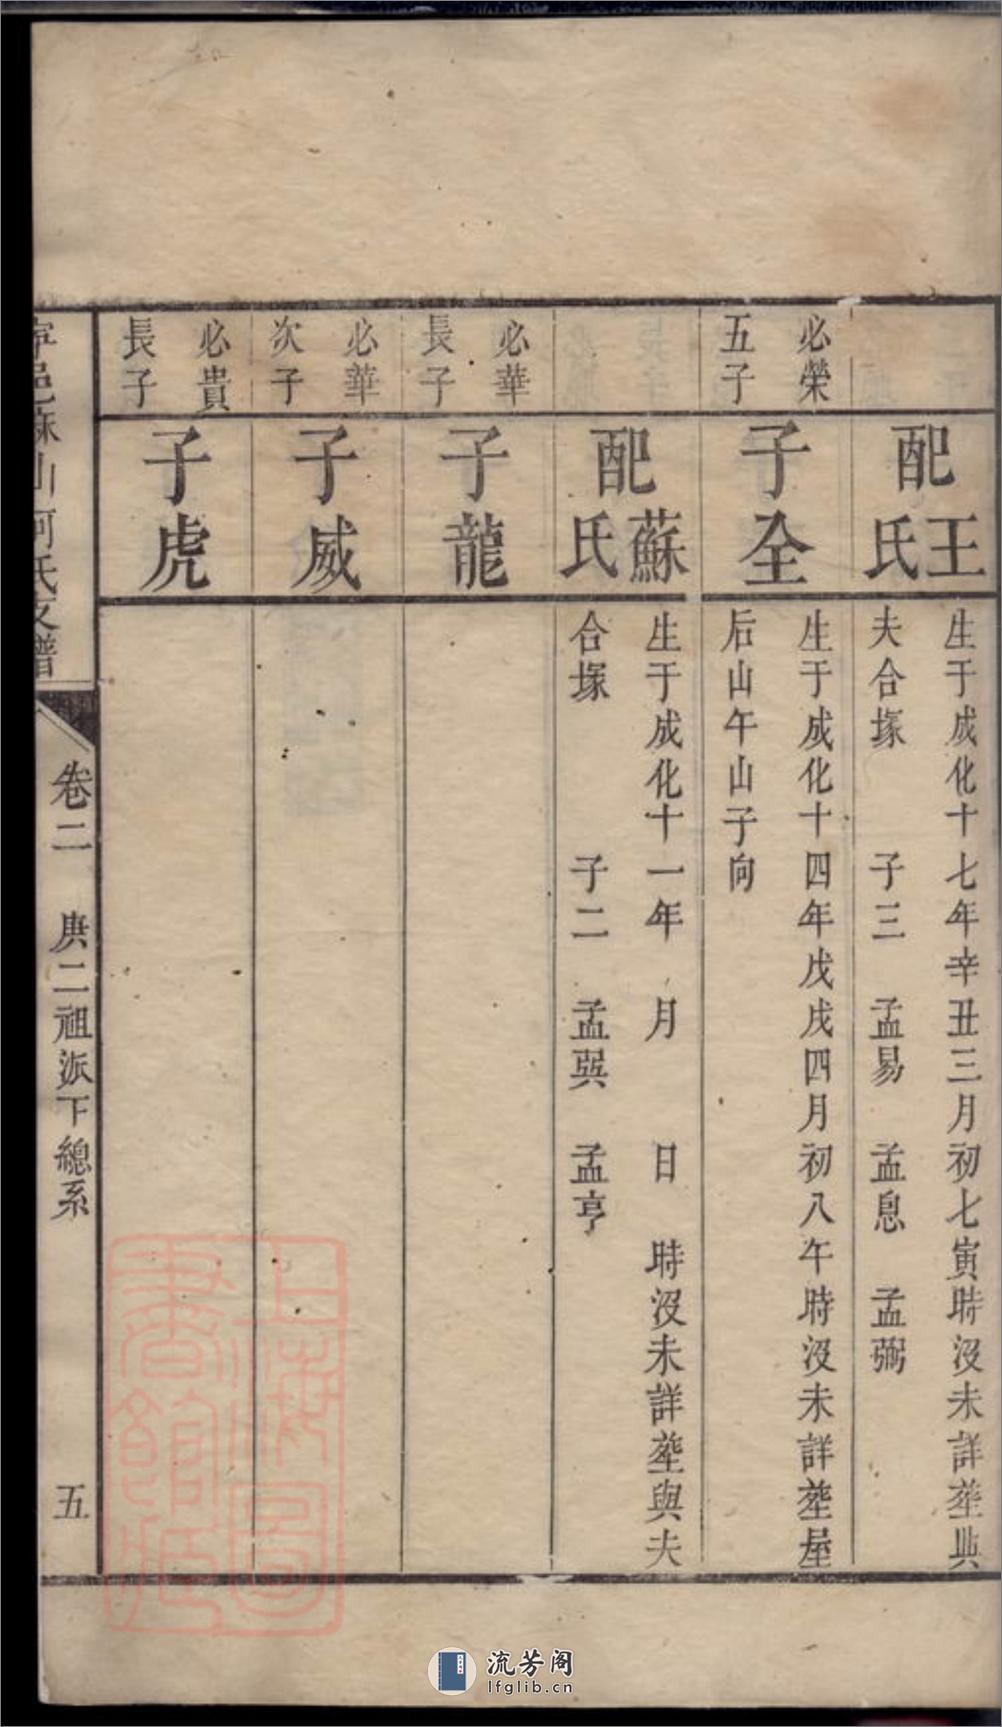 配王氏
生于成化十七年辛丑三月初七寅時沒未詳塟與
夫合塚 子三 孟易 孟息 孟弼
必榮
五子
子全
生于成化十四年戊戌四月初八午時沒未詳塟屋
后山午山子向
配蘇氏
生于成化十一年 月 日 時沒未詳塟與夫
合塚 子二 孟㒷 孟亨
必華
長子
子龍
必華
次子
子威
必貴
長子
子虎
寧邑蘇山何氏支譜
卷二 庚二祖派下總系
五
上海圖
書館藏
流芳阁
lfglib.cn